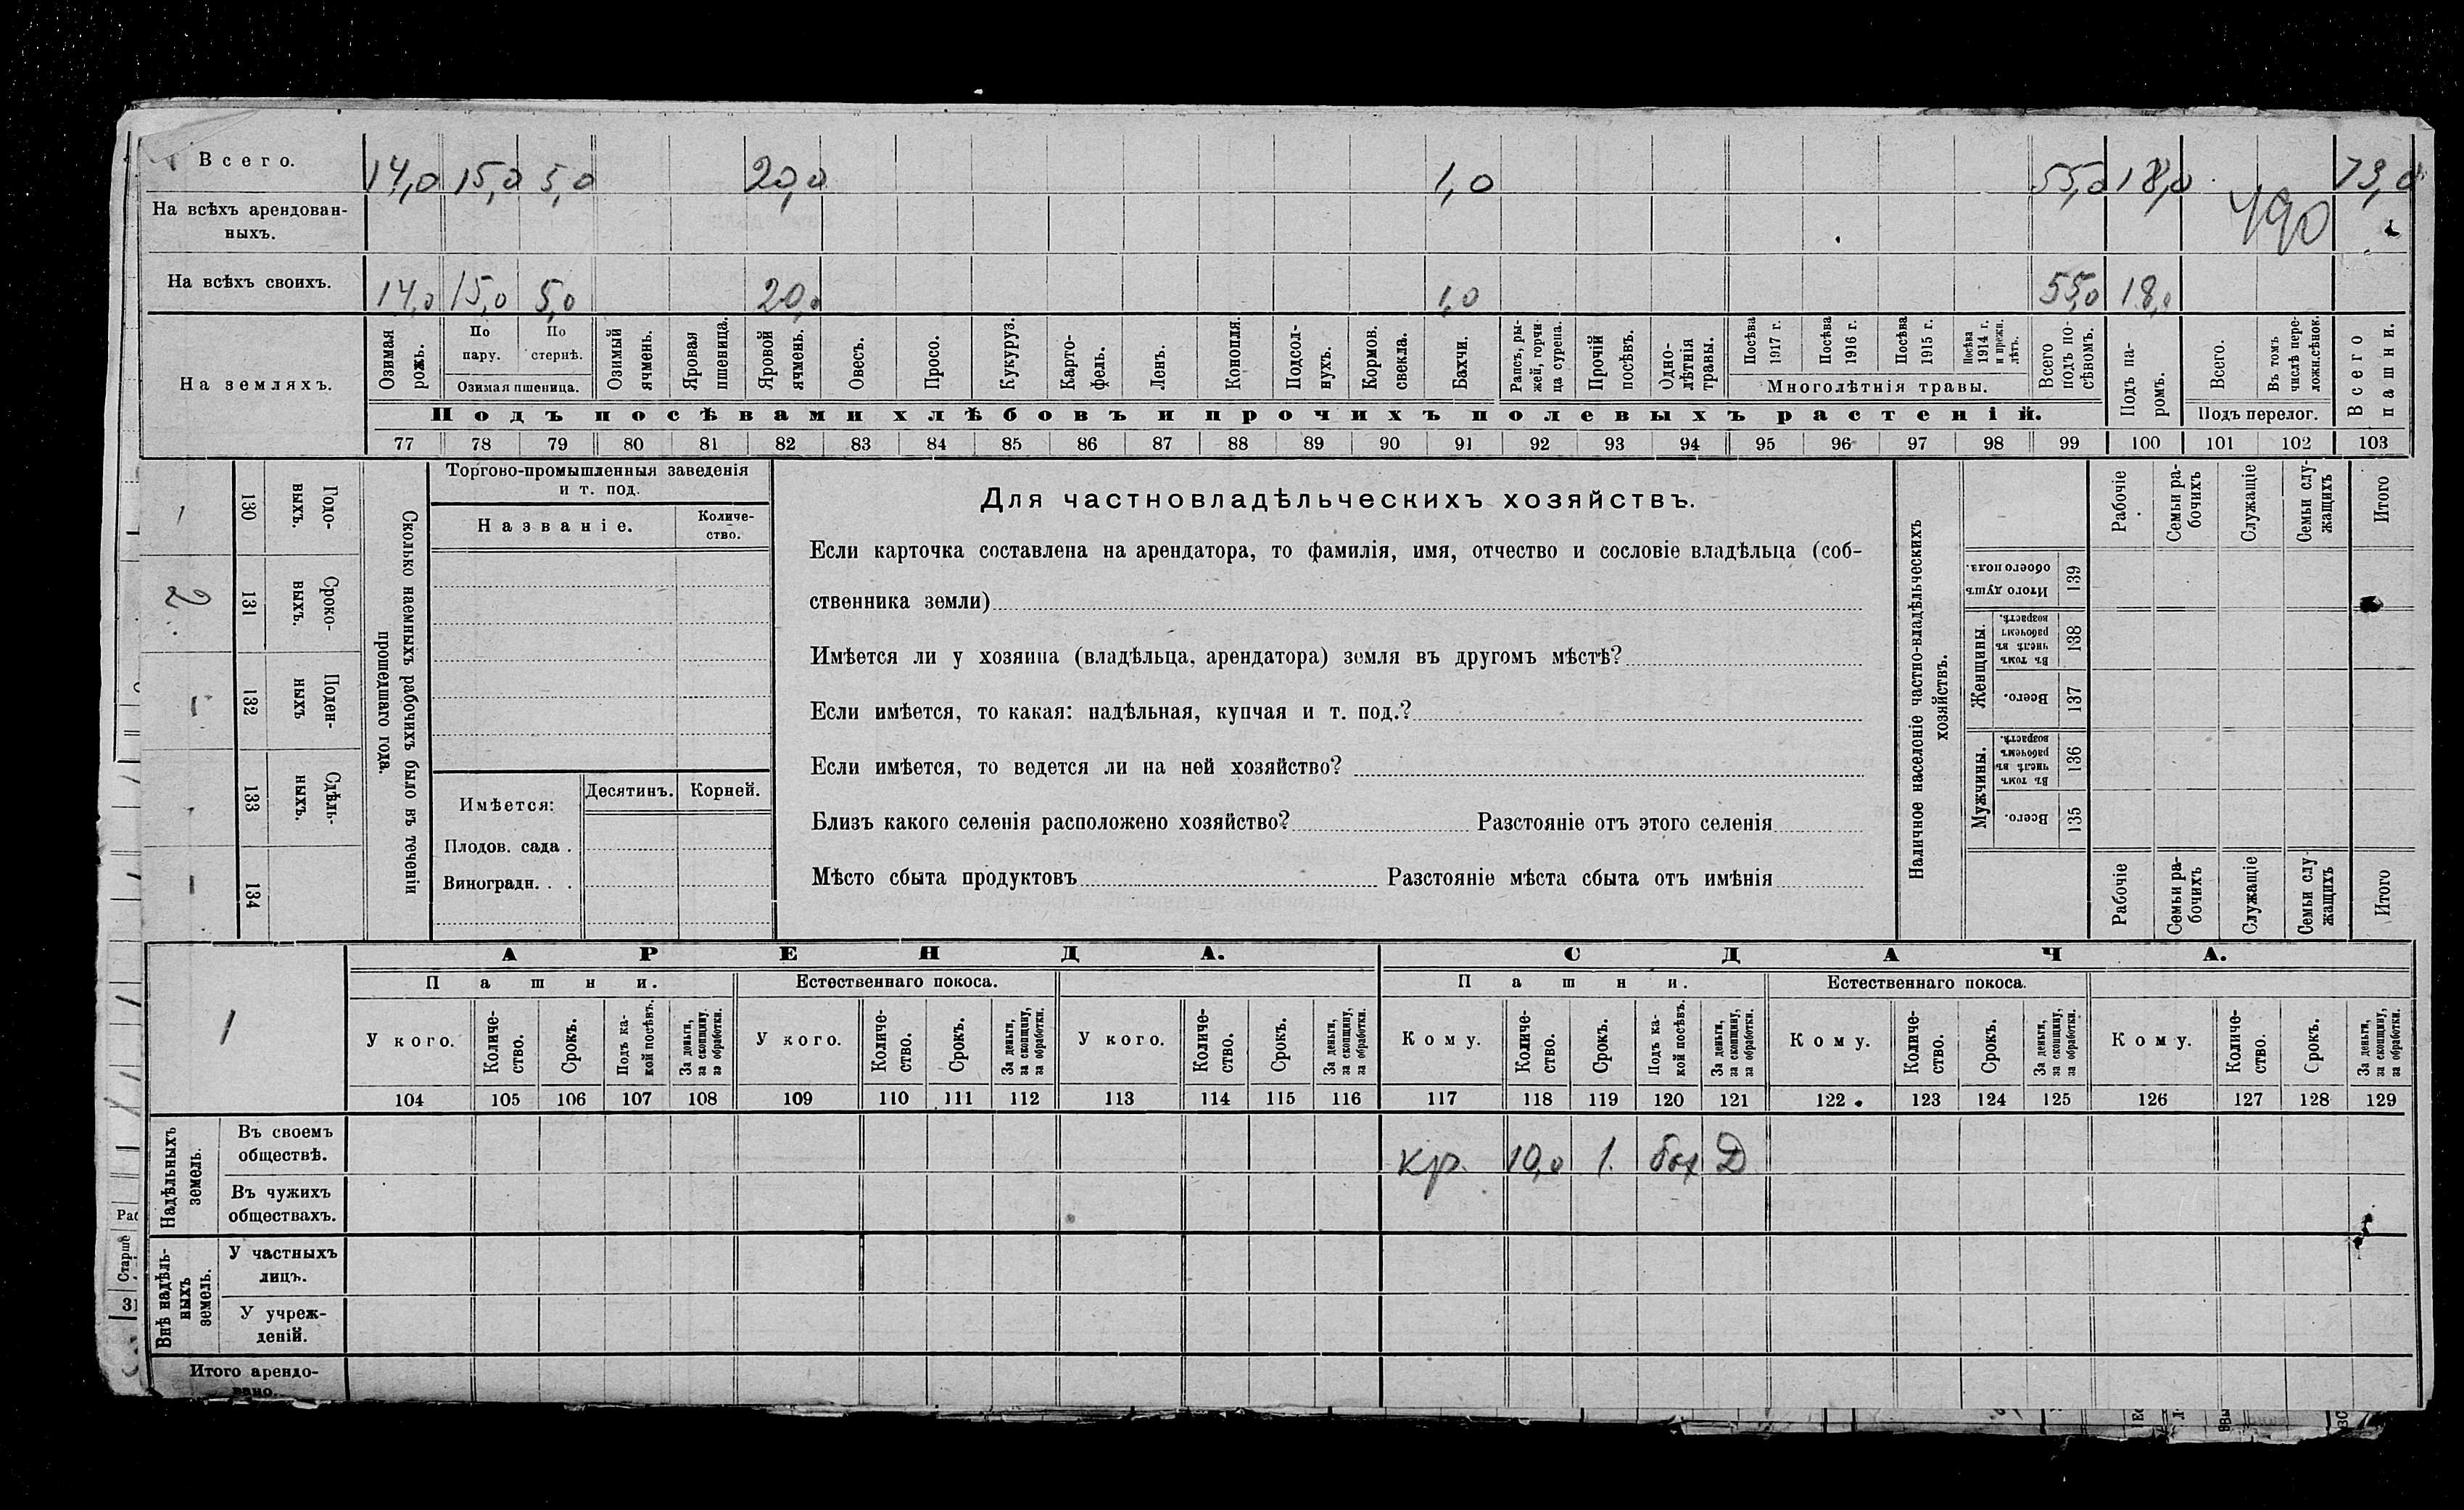 Всего. 14,0 15,0 5,0 20,0 1,0 55,0 18,0 73,0
На всѣхъ арендован-
ныхъ. 490
На всѣхъ своихъ. 14,0 15,0 5,0 20,0 1,0 55,0 18,0
На земляхъ.
Озимая рожь.
По пару.
По стернѣ.
Озимая пшеница.
Озимый ячмень.
Яровая пшеница.
Яровой ячмень.
Овесъ.
Просо.
Кукуруз.
Карто-
фель.
Ленъ.
Конопля.
Подсол-
нухъ.
Кормов. свекла.
Бахчи.
Рапсъ, ры-
жей, горчи-
ца сурепа.
Прочій посѣвъ.
Одно-
лѣтнія травы.
Посѣва 1917 г.
Посѣва 1916 г.
Посѣва 1915 г.
Посѣва 1914 г. и прежн. лѣтъ.
Многолѣтнія травы.
Всего подъ по-
сѣвомъ.
Подъ па-
ромъ.
Всего.
Въ томъ числѣ пере-
ложн.сѣнок.
Подъ перелог.
Всего пашни.
Подъ посѣвами хлѣбовъ и прочихъ полевыхъ растеній.
77 78 79 80 81 82 83 84 85 86 87 88 89 90 91 92 93 94 95 96 97 98 99 100 101 102 103
Сколько наемныхъ рабочихъ было въ теченіи
прошедшаго года.
Годо-
выхъ.
130
Сроко-
выхъ.
131
2
Поден-
ныхъ
132
Сдѣль-
ныхъ.
133
134
Торгово-промышленныя заведенія
и т. под.
Названіе.
Количе-
ство.
Имѣется:
Десятинъ.
Корней.
Плодов. сада .
Виноградн. . .
Для частновладѣльческихъ хозяйствъ.
Если карточка составлена на арендатора, то фамилія, имя, отчество и сословіе владѣльца (соб-
ственника земли)
Имѣется ли у хозяина (владѣльца, арендатора) земля въ другомъ мѣстѣ?
Если имѣется, то какая: надѣльная, купчая и т. под.?
Если имѣется, то ведется ли на ней хозяйство?
Близъ какого селенія расположено хозяйство? Разстояніе отъ этого селенія
Мѣсто сбыта продуктовъ Разстояніе мѣста сбыта отъ имѣнія
Наличное населеніе частно-владѣльческихъ
хозяйствъ.
Рабочіе
Семьи ра-
бочихъ
Служащіе
Семьи слу-
жащихъ
Итого
Итого душъ обоего пола.
139
Женщины.
Въ томъ числѣ въ рабочемъ возрастѣ.
138
Всего.
137
Мужчины.
Въ томъ числѣ въ рабочемъ возрастѣ.
136
Всего.
135
Рабочіе
Семьи ра-
бочихъ
Служащіе
Семьи слу-
жащихъ
Итого
АРЕНДА. СДАЧА.
Пашни. Естественнаго покоса. Пашни. Естественнаго покоса.
У кого.
Количе-
ство.
Срокъ.
Подъ ка-
кой посѣвъ.
За деньги, за скопщину, за обработки.
У кого.
Количе-
ство.
Срокъ.
За деньги, за скопщину, за обработки.
У кого.
Количе-
ство.
Срокъ.
За деньги, за скопщину, за обработки.
Кому.
Количе-
ство.
Срокъ.
Подъ ка-
кой посѣвъ.
За деньги, за скопщину, за обработки.
Кому.
Количе-
ство.
Срокъ.
За деньги, за скопщину, за обработки.
Кому.
Количе-
ство.
Срокъ.
За деньги, за скопщину, за обработки.
104 105 106 107 108 109 110 111 112 113 114 115 116 117 118 119 120 121 122 123 124 125 126 127 128 129
Надѣльныхъ
земель.
Въ своемъ
обществѣ. кр. 10,0 1. бах Д
Въ чужихъ
обществахъ.
Внѣ надѣль-
ныхъ
земель.
У частныхъ
лицъ.
У учреж-
деній.
Итого арендо-
вано.